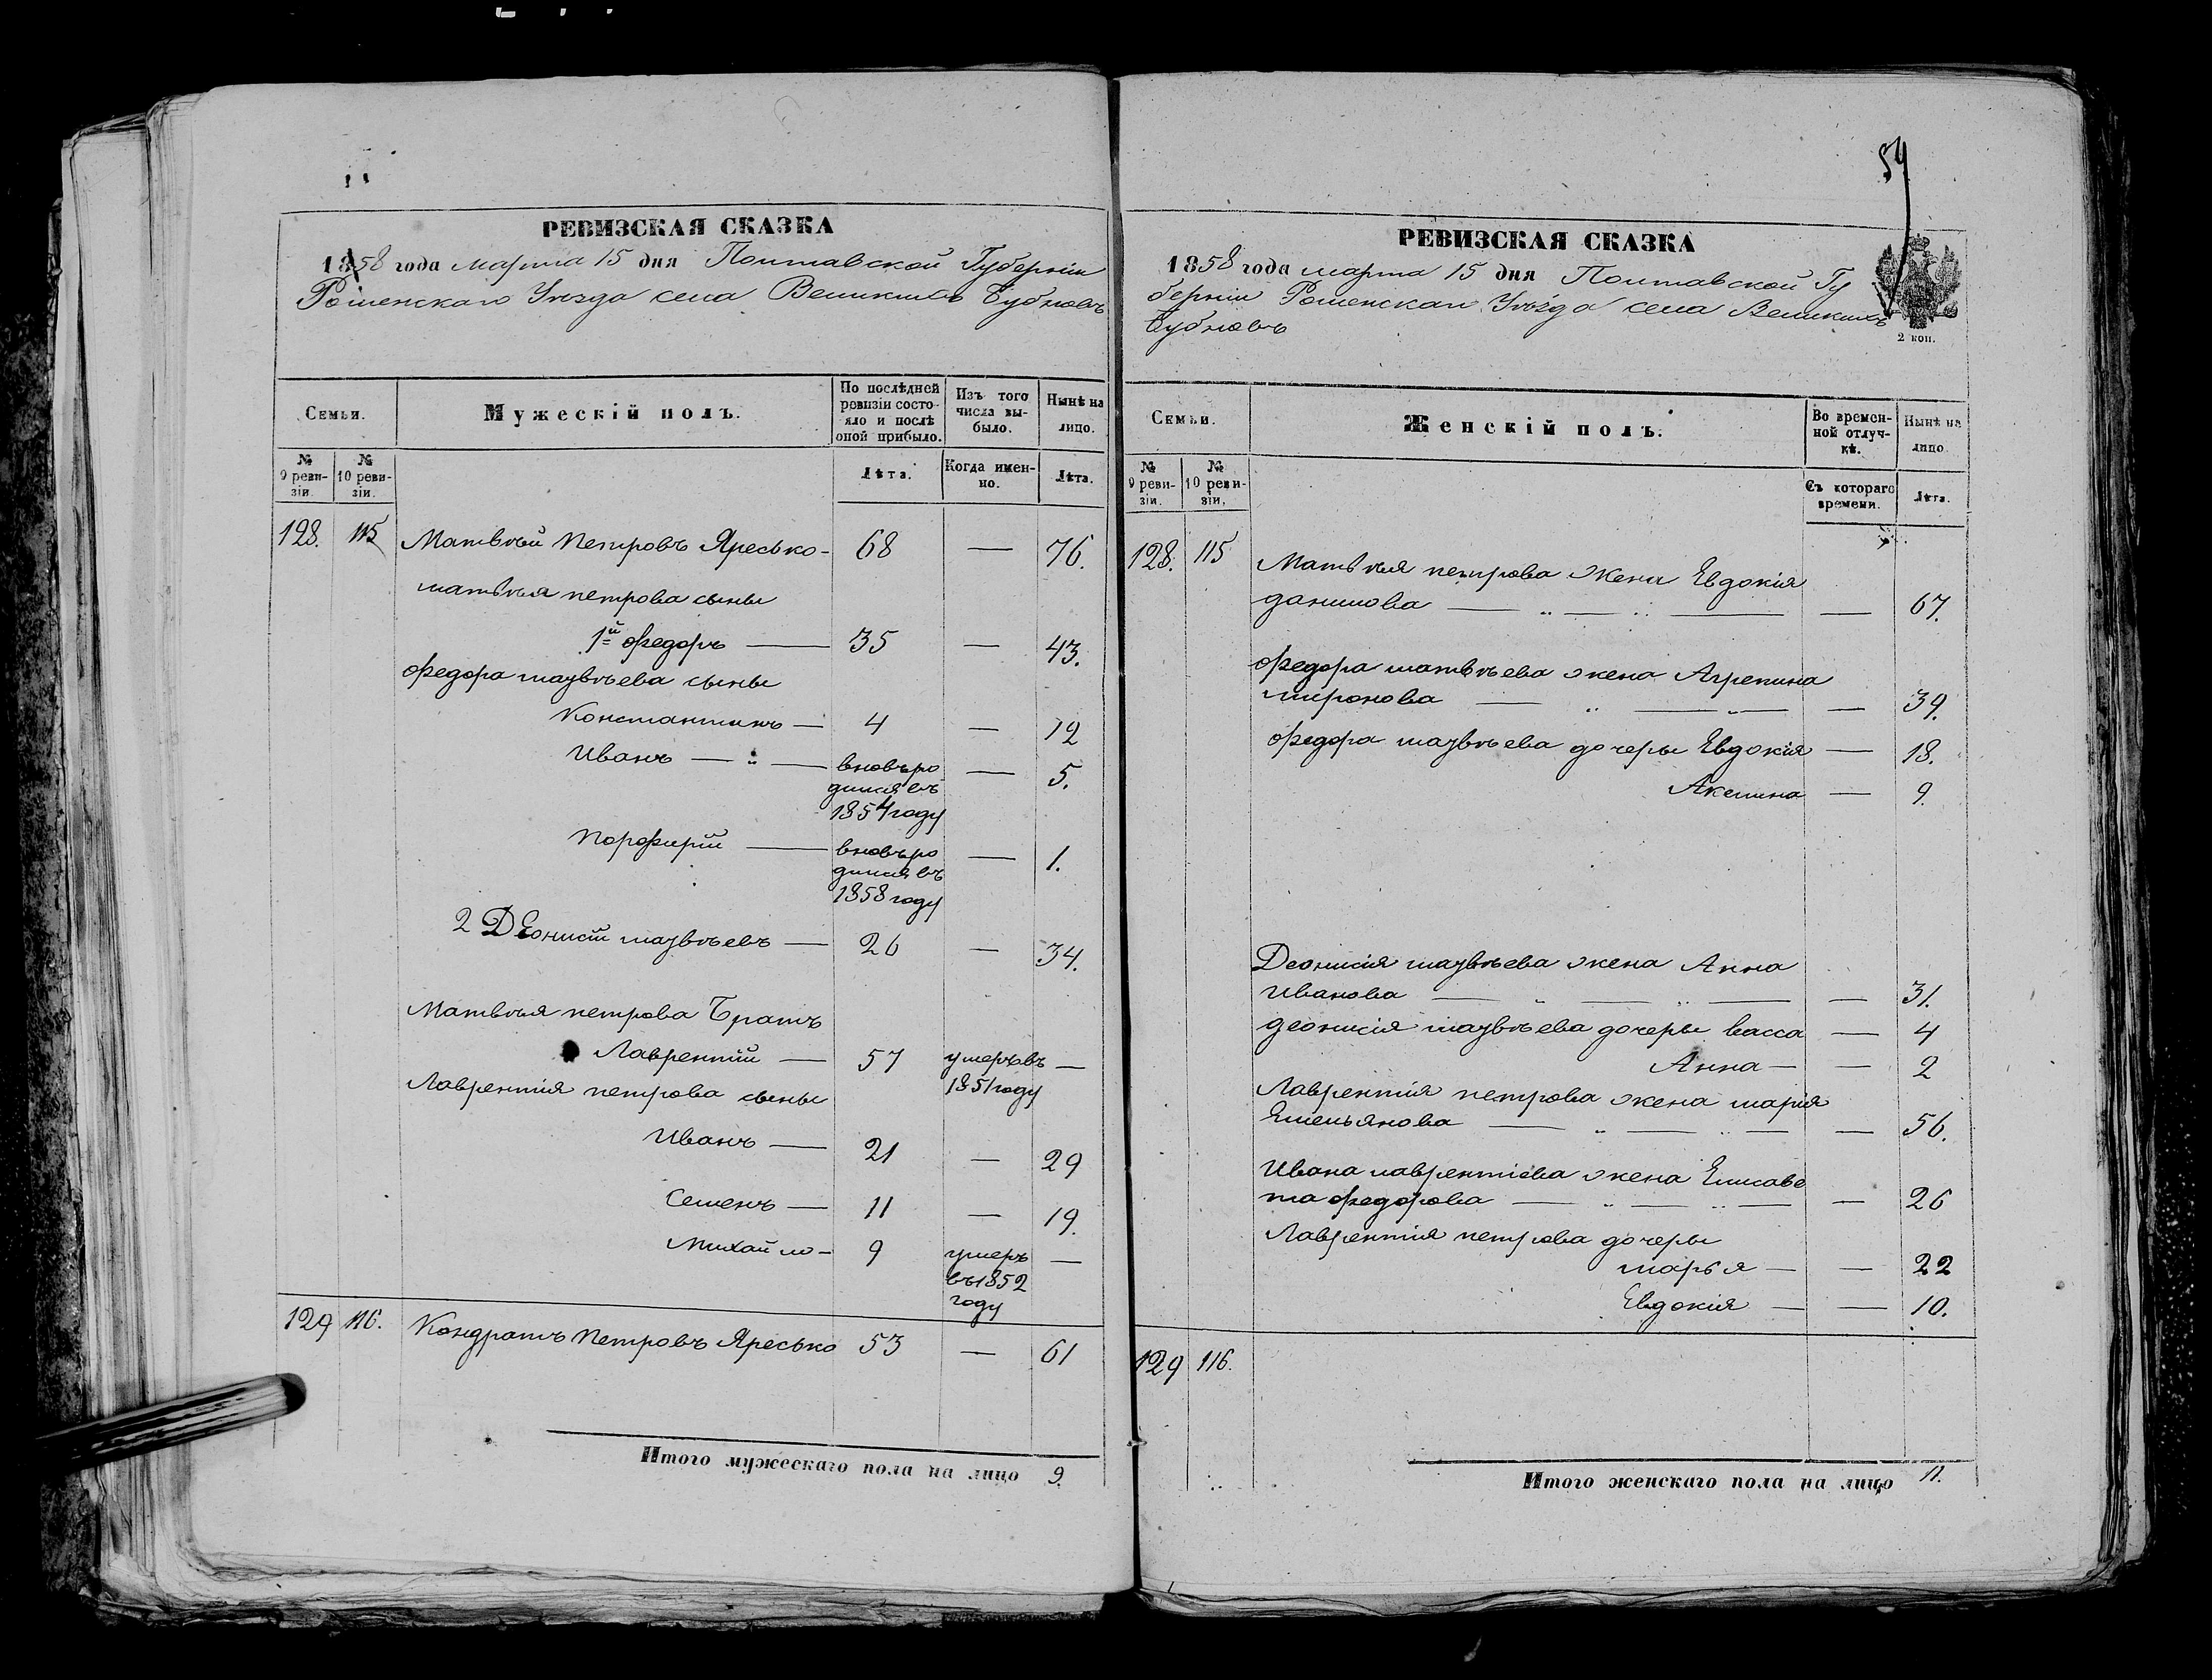 РЕВИЗСКАЯ СКАЗКА
1858 года марта 15 дня Полтавской Губерніи
Роменскаго Уѣзда села Великихъ Бубновъ
Семьи.
Мужескій полъ.
По послѣдней ревизіи состояло и послѣ оной прибыло.
Изъ того числа выбыло.
Нынѣ на лицо.
№ 9 ревизіи.
№ 10 ревизіи.
Лѣта.
Когда именно.
Лѣта.
128. 115 Матвѣй Петровъ Яресько - 68 — 76.
матвѣя петрова сыны
1й Федоръ — 35 — 43.
Федора матвѣева сыны
Константинъ — 4 — 12
Иванъ — " — вновь ро — 5.
дился въ
1854 году
Порфирій — вновь ро — 1.
дился въ
1858 году
2 Деонисій матвѣевъ — 26 — 34.
Матвѣя петрова Братъ
Лаврентій — 57 умеръ въ —
1851 году
Лаврентія петрова сыны
Иванъ — 21 — 29
Семенъ — 11 — 19.
Михайло - 9 умеръ —
въ 1852
году
129 116. Кондратъ Петровъ Яресько 53 — 61
Итого мужескаго пола на лицо 9.
59
РЕВИЗСКАЯ СКАЗКА
1858 года марта 15 дня Полтавской Гу
берніи Роменскаго Уѣзда села Великихъ
Бубновъ
2 коп.
Семьи.
Женскій полъ.
Во временной отлучкѣ.
Нынѣ на лицо.
№ 9 ревизіи.
№ 10 ревизіи.
Съ котораго времени.
Лѣта.
128. 115 Матвѣя петрова жена Евдокія
данилова — " — " — — 67.
Федора матвѣева жена Агрепина
миронова — " — " — — 39.
Федора матвѣева дочеры Евдокія — 18.
Акилина — 9.
Деонисія матвѣева жена Анна
Иванова — " — " — — 31.
деонисія матвѣева дочеры васса — 4
Анна — — 2
Лаврентія петрова жена марія
Емельянова — " — " — — 56.
Ивана лаврентіева жена Елисаве
та федорова — " — " — — 26
Лаврентія петрова дочеры
марья — — 22
Евдокія — — 10.
129 116.
Итого женскаго пола на лицо 11.